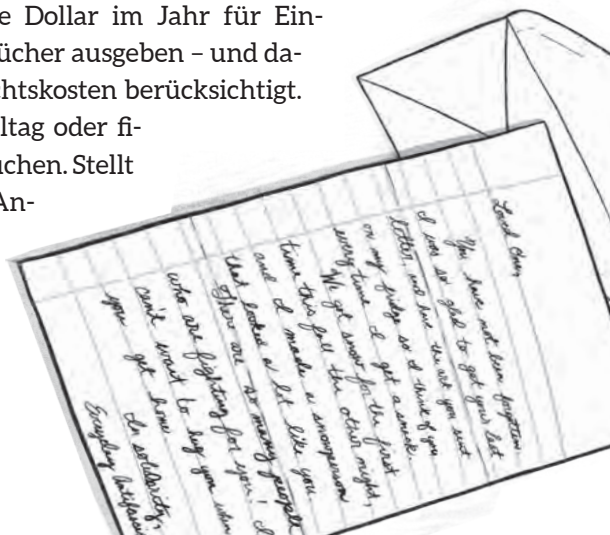 e Dollar im Jahr für Ein-
ücher ausgeben – und da-
chtskosten berücksichtigt.
ltag oder fi-
uchen. Stellt
An-
Loved One,
You have not been forgotten.
I was so glad to get your last
letter, and have the art you sent
on my fridge so I think of you
every time I get a snack.
We got snow for the first
time this fall the other night,
and I made a snowperson
that looked a lot like you.
There are so many people
who are fighting for you! I
can't wait to hug you when
you get home.
In solidarity,
Everyday Antifascis